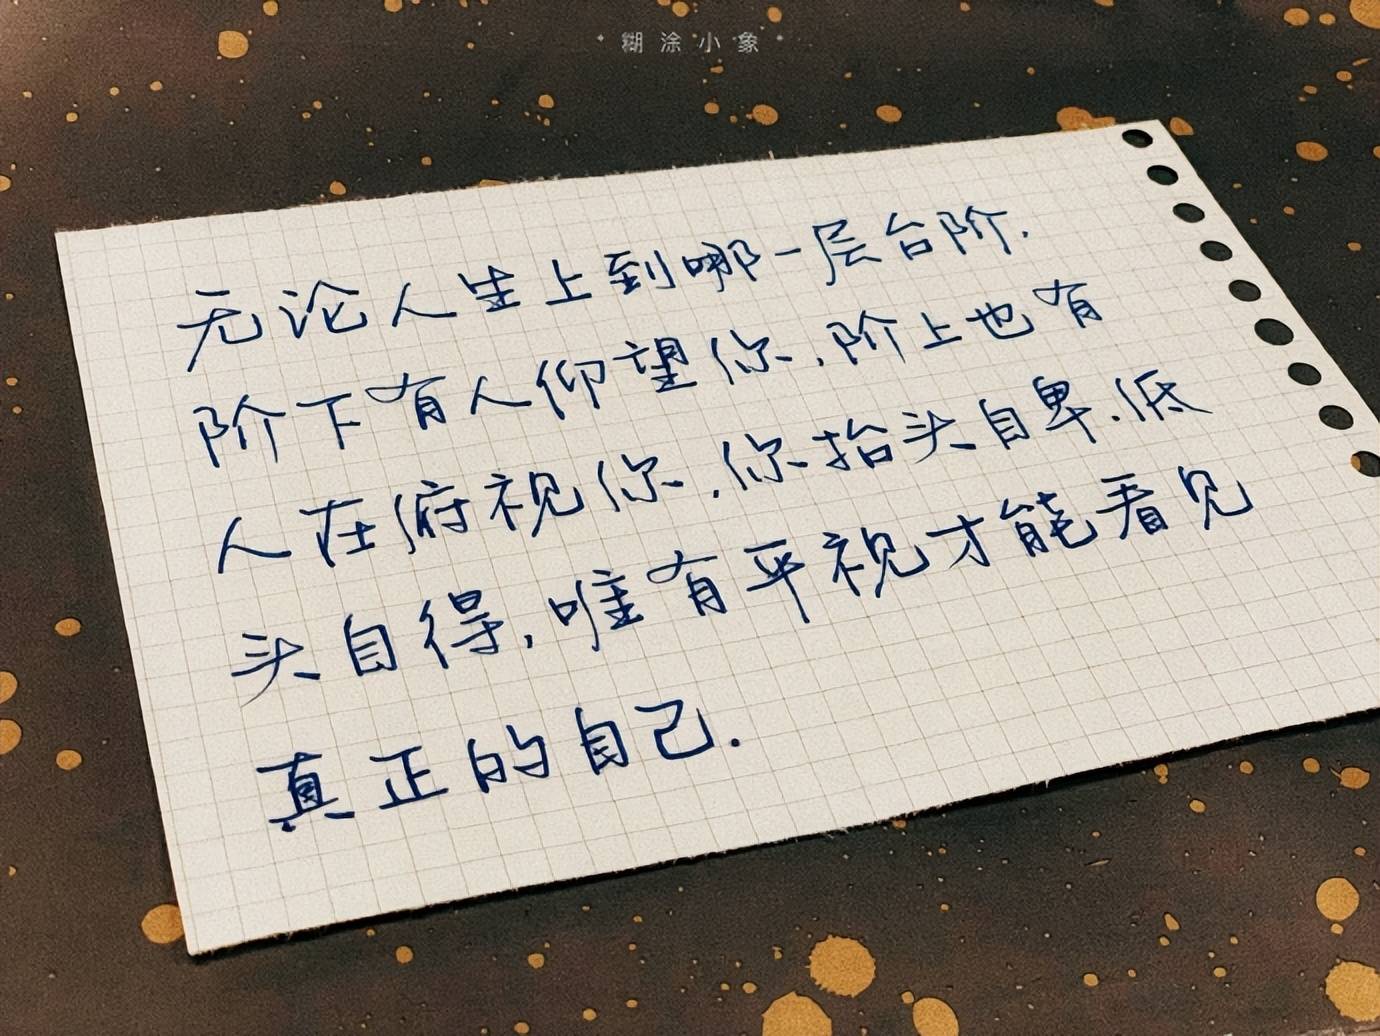 糊涂小象
无论人生上到哪一层台阶.
阶下有人仰望你.阶上也有
人在俯视你.你抬头自卑.低
头自得,唯有平视才能看见
真正的自己.